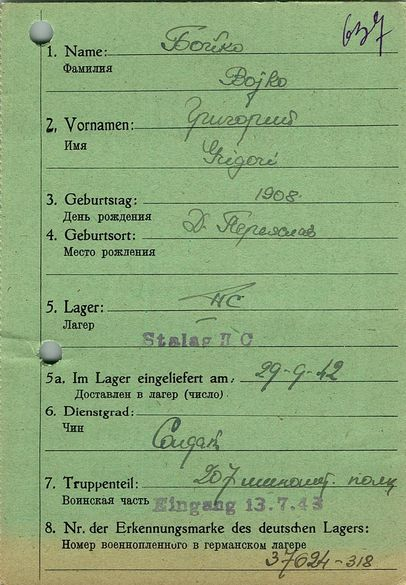 637
Бойко
1. Name:
Фамилия
Bojko
2. Vornamen: Григорий
Имя
Grigori
3. Geburtstag: 1908.
День рождения
4. Geburtsort: Д. Переяслав
Место рождения
5. Lager: IIC
Лагер
Stalag II C
5a. Im Lager eingeliefert am: 29-9-42
Доставлен в лагер (число)
6. Dienstgrad:
Чин
Солдат
7. Truppenteil: 207 миномет. полк
Воинская часть Eingang 13.7.43
8. Nr. der Erkennungsmarke des deutschen Lagers:
Номер военнопленного в германском лагере
37624-318